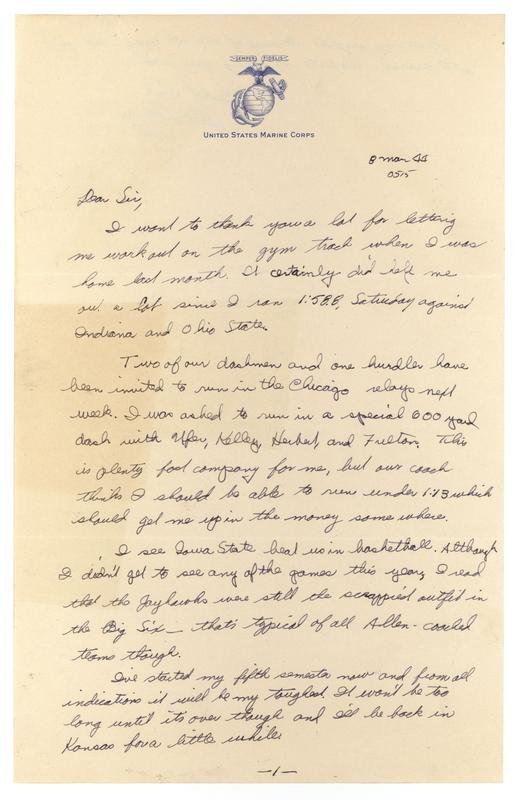 SEMPER FIDELIS
UNITED STATES MARINE CORPS
8 Mar 44
0515
Dear Sir,
I want to thank you a lot for letting
me work out on the gym track when I was
home last month. It certainly did help me
out a lot since I ran 1:58.8, Saturday against
Indiana and Ohio State.
Two of our dashmen and one hurdler have
been invited to run in the Chicago relays next
week. I was asked to run in a special 600 yard
dash with Ufer, Kelley, Herbert, and Fulton. This
is plenty fast company for me, but our coach
thinks I should be able to run under 1:13 which
should get me up in the money some where.
I see Iowa State beat us in basketball. Although
I didn't get to see any of the games this year, I read
that the Jayhawks were still the scrappiest outfit in
the Big Six — that's typical of all Allen-coached
teams though.
I've started my fifth semester now and from all
indications it will be my toughest. It won't be too
long until it's over though and I'll be back in
Kansas for a little while.
—1—